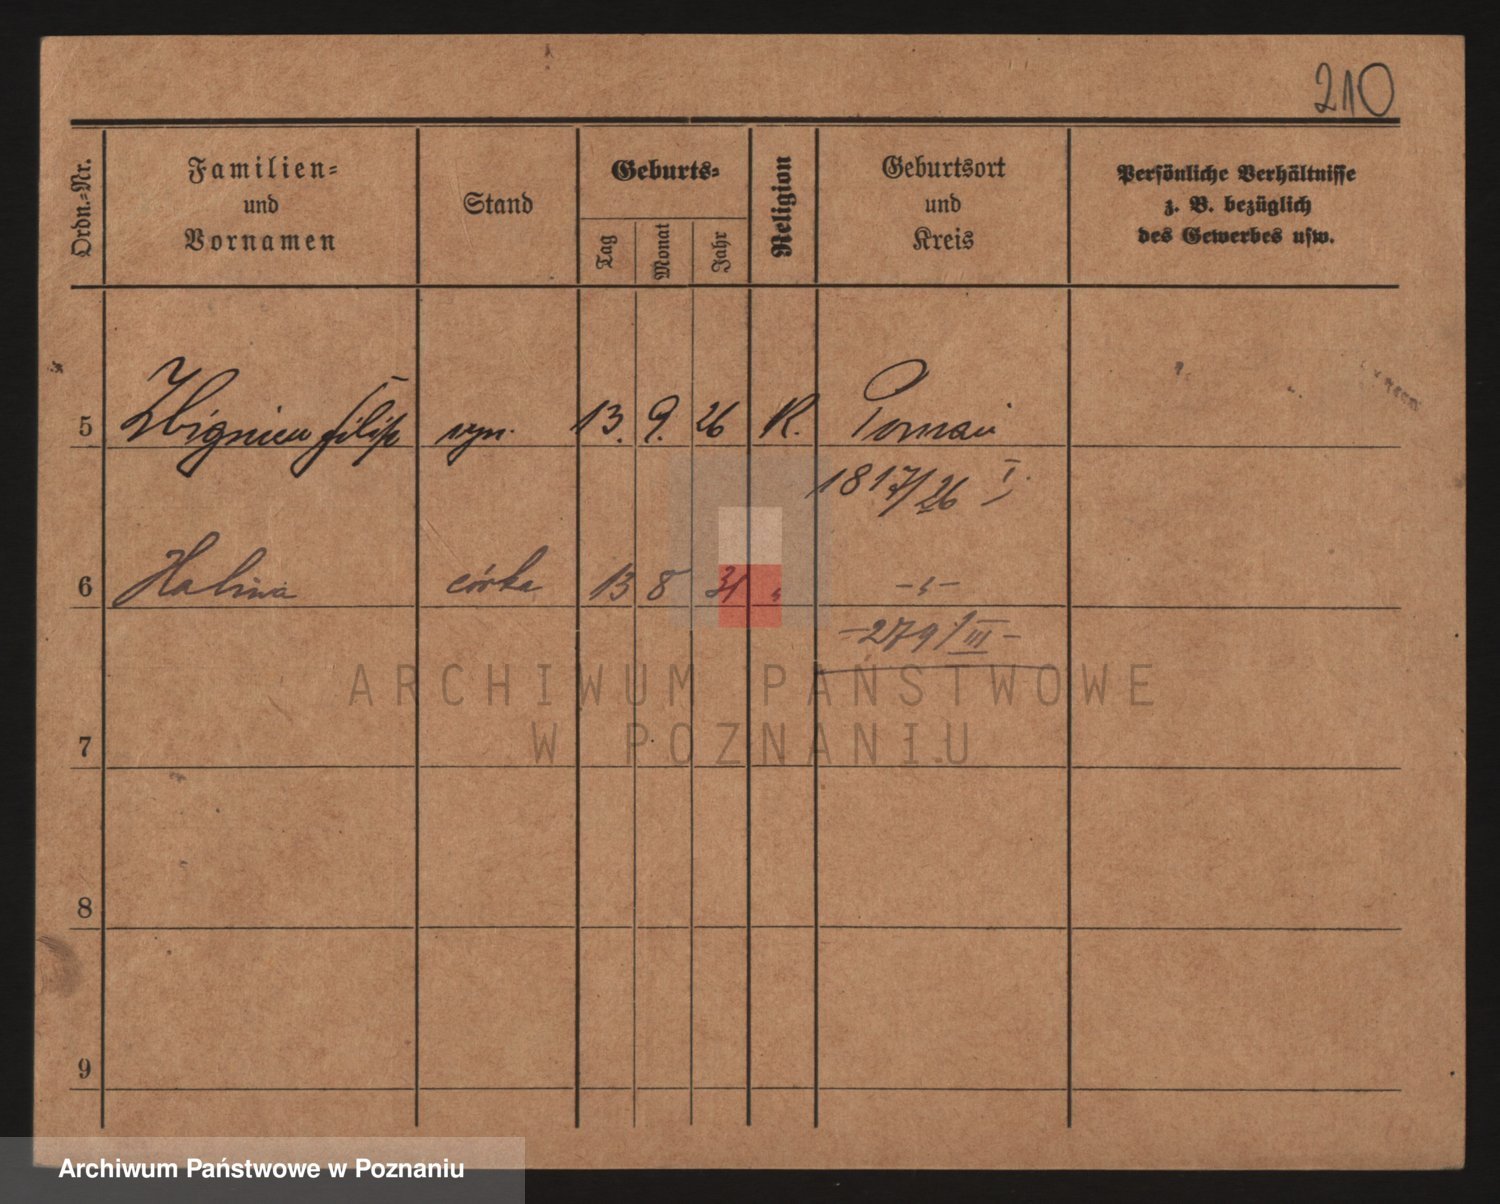 210
Ordn.-Nr.
Familien-
und
Vornamen
Stand
Geburts-
Tag
Monat
Jahr
Religion
Geburtsort
und
Kreis
Persönliche Verhältnisse
z. B. bezüglich
des Gewerbes usw.
5 Zbigniew Filip syn. 13. 9. 26 R. Poznań
1817/26 I
6 Halina córka 13 8 31 " -"-
-279/III-
7
8
9
ARCHIWUM PAŃSTWOWE
W POZNANIU
Archiwum Państwowe w Poznaniu